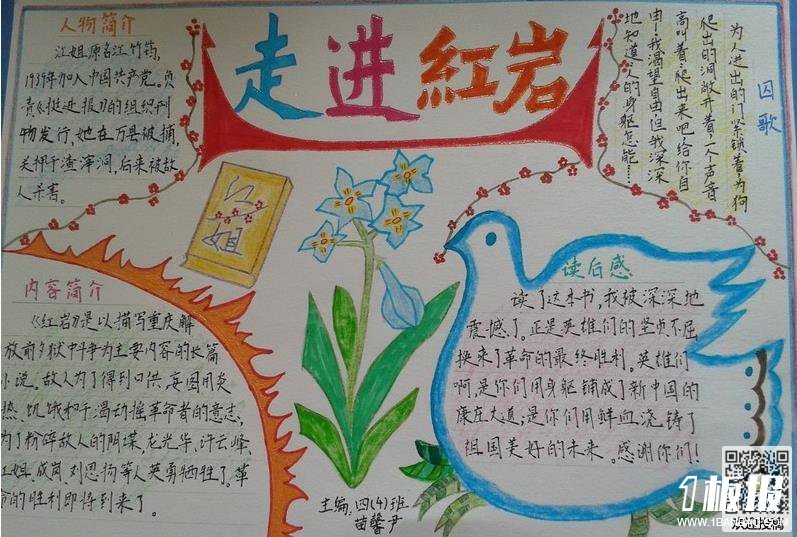 走进紅岩
人物简介
江姐原名江竹筠,
1939年加入中国共产党。负
责《挺进报》的组织刊
物发行,她在万县被捕,
关押于渣滓洞,后来被敌
人杀害。
江姐
囚歌
为人进出的门紧锁着,为狗
爬出的洞敞开着,一个声音
高叫着:爬出来吧,给你自
由!我渴望自由,但我深深
地知道,人的身躯怎能……
内容简介
《红岩》是以描写重庆解
放前夕狱中斗争为主要内容的长篇
小说。敌人为了得到口供,妄图用炎
热、饥饿和干渴动摇革命者的意志,
为了粉碎敌人的阴谋,龙光华、许云峰、
江姐、成岗、刘思扬等人英勇牺牲了。革
命的胜利即将到来了。
读后感
读了这本书,我被深深地
震憾了。正是英雄们的坚贞不屈
换来了革命的最终胜利。英雄们
啊,是你们用身躯铺成了新中国的
康庄大道;是你们用鲜血浇铸了
祖国美好的未来。感谢你们!
主编:四(4)班
苗馨尹
1板报
WWW.1BANBAO.COM
欢迎投稿